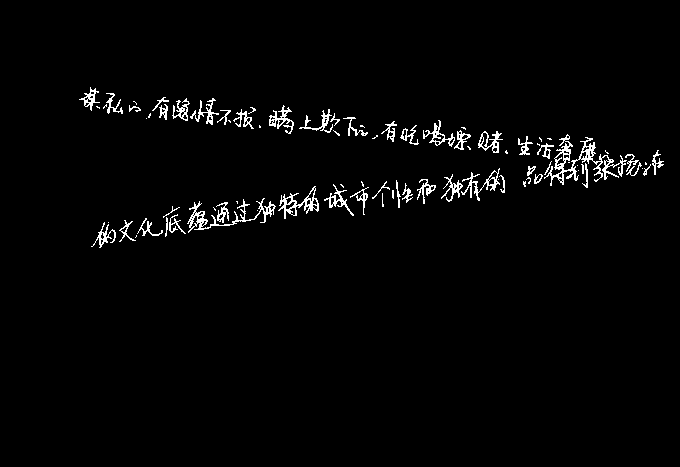 谋私的,有隐情不报、瞒上欺下的,有吃喝嫖赌、生活奢靡
的文化底蕴通过独特的城市个性和独有的 品得到彰扬。在